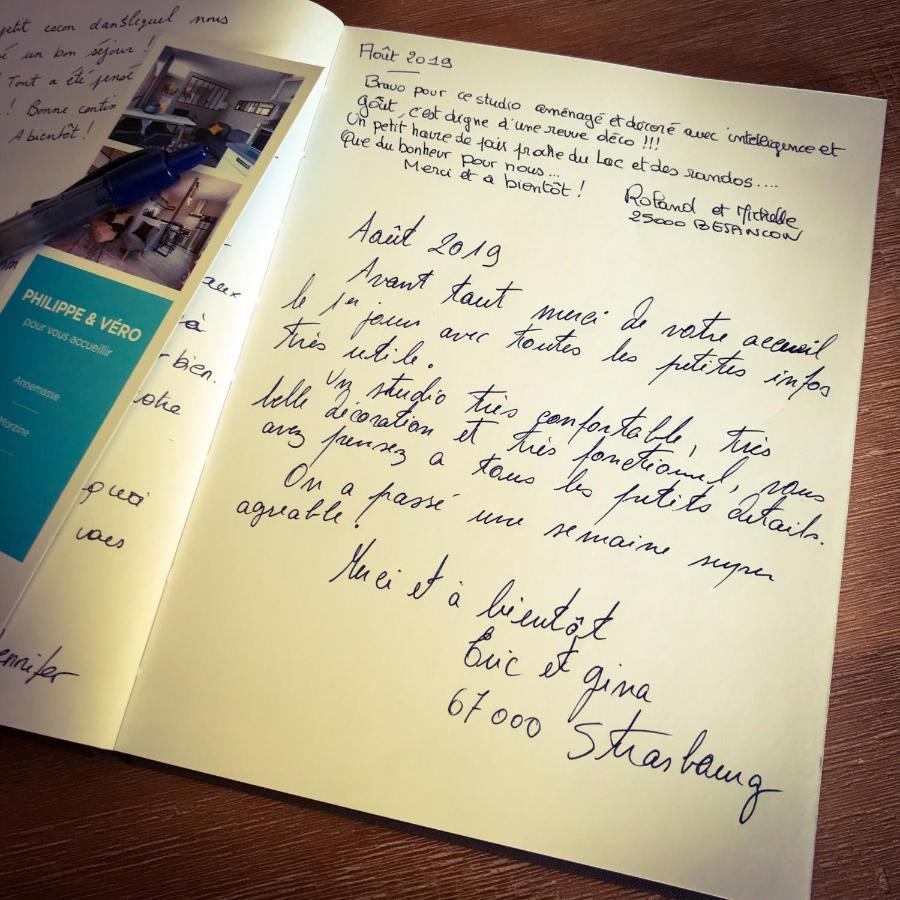 petit cocon dans lequel nous
é un bon séjour !
Tout a été pensé
! Bonne contin
A bientôt !
PHILIPPE & VÉRO
pour vous accueillir
Annemasse
Morzine
aux
à
bien.
quoi
vous
ennifer
Août 2019
Bravo pour ce studio aménagé et décoré avec intelligence et
goût, c'est digne d'une revue déco !!!
Un petit havre de paix proche du Lac et des randos....
Que du bonheur pour nous...
Merci et à bientôt !
Roland et Michelle
25000 BESANCON
Août 2019
Avant tout merci de votre accueil
le 1er jour avec toutes les petites infos
très utile.
Un studio très confortable, très
belle décoration et très fonctionnel, vous
avez pensez a tous les petits détails.
On a passé une semaine super
agréable.
Merci et à bientôt
Eric et gina
67000 Strasbourg